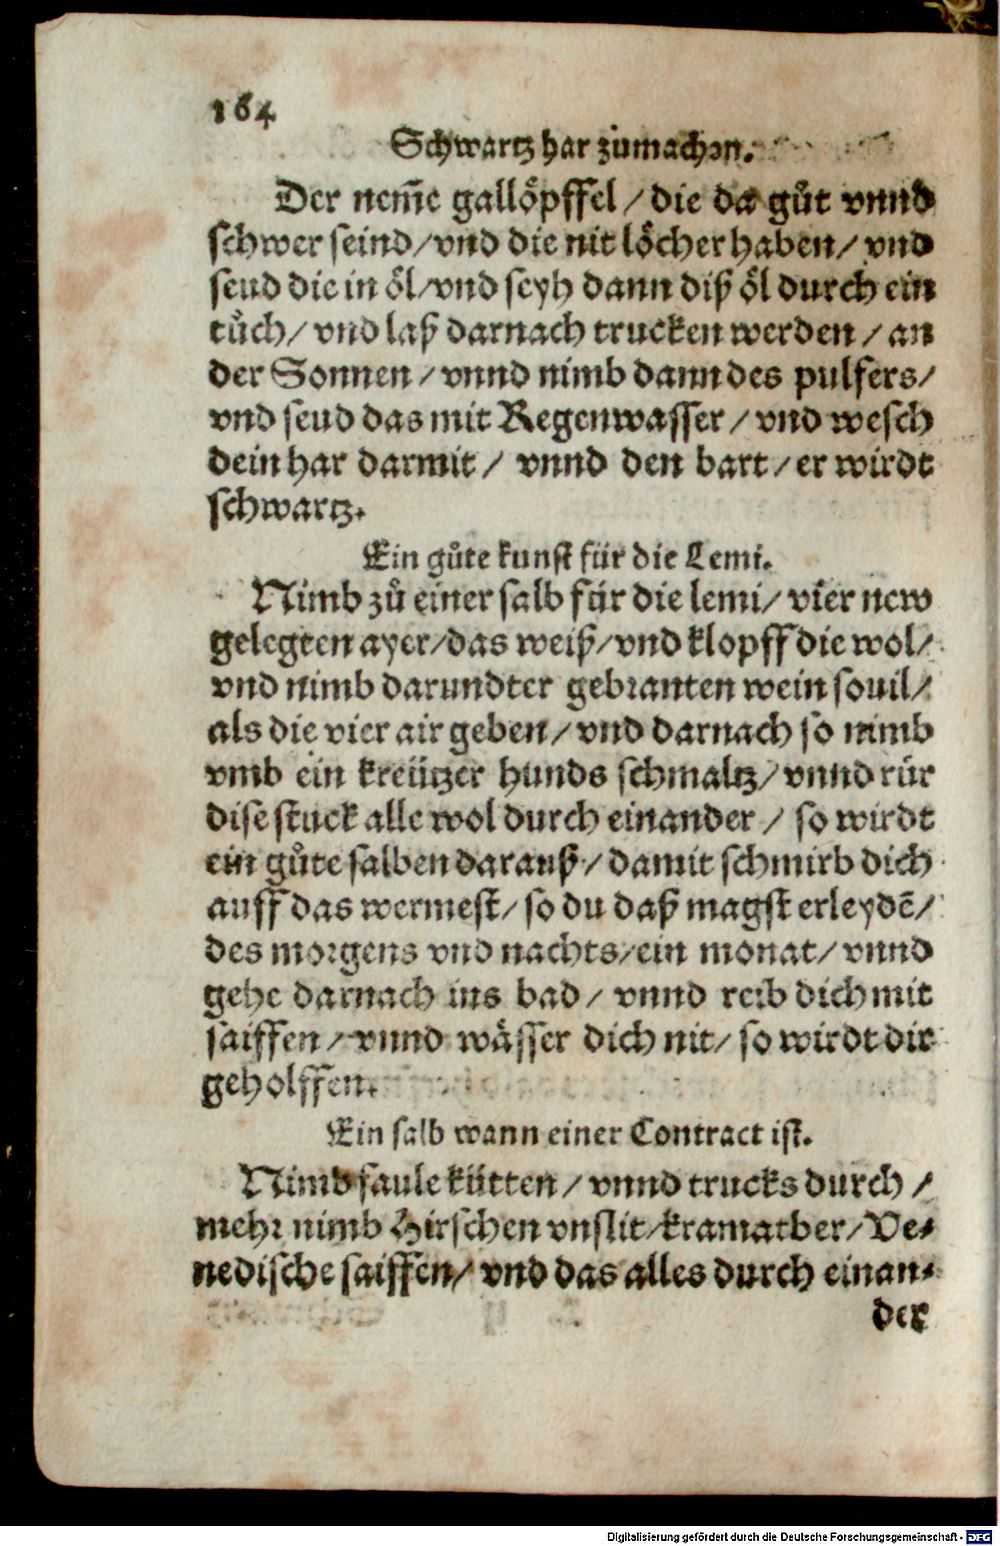 164
Schwartz har zůmachen.
Der nem̃e gallöpffel / die da gůt vnnd
schwer seind / vnd die nit löcher haben / vnd
seud die in öl / vnd seyh dann diß öl durch ein
tůch / vnd laß darnach trucken werden / an
der Sonnen / vnnd nimb dann des pulfers /
vnd seud das mit Regenwasser / vnd wesch
dein har darmit / vnnd den bart / er wirdt
schwartz.
Ein gůte kunst für die Lemi.
Nimb zů einer salb für die lemi / vier new
gelegten ayer / das weiß / vnd klopff die wol /
vnd nimb darundter gebranten wein souil /
als die vier air geben / vnd darnach so nimb
vmb ein kreützer hunds schmaltz / vnnd rür
dise stuck alle wol durch einander / so wirdt
ein gůte salben darauß / damit schmirb dich
auff das wermest / so du daß magst erleydẽ /
des morgens vnd nachts / ein monat / vnnd
gehe darnach ins bad / vnnd reib dich mit
saiffen / vnnd wässer dich nit / so wirdt dir
geholffen.
Ein salb wann einer Contract ist.
Nimb faule kütten / vnnd trucks durch /
mehr nimb Hirschen vnslit / kramatber / Ve⸗
nedische saiffen / vnd das alles durch einan⸗
der
Digitalisierung gefördert durch die Deutsche Forschungsgemeinschaft - DFG